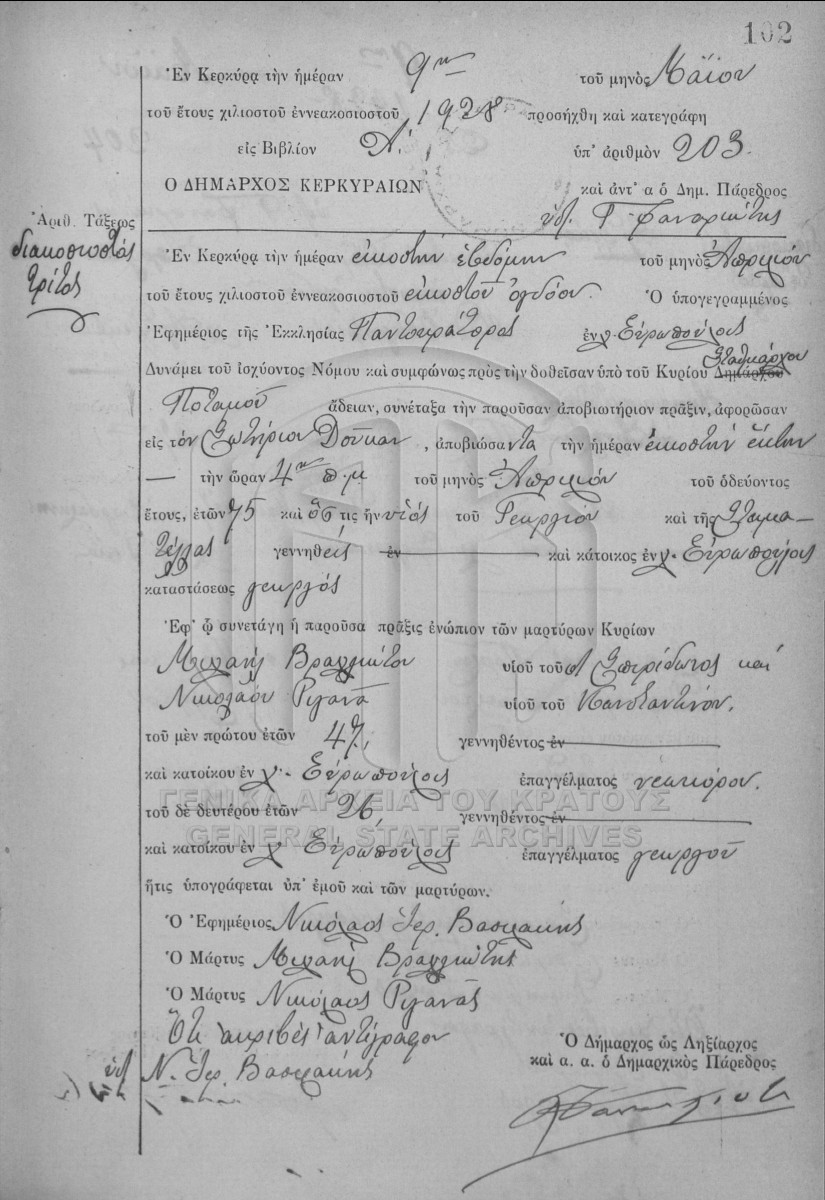 102
Ἐν Κερκύρᾳ τὴν ἡμέραν 9ην τοῦ μηνὸς Μαΐου
τοῦ ἔτους χιλιοστοῦ ἐννεακοσιοστοῦ 1928 προσήχθη καὶ κατεγράφη
εἰς Βιβλίον Α! ὑπ' ἀριθμὸν 203.
Ο ΔΗΜΑΡΧΟΣ ΚΕΡΚΥΡΑΙΩΝ καὶ ἀντ' α ὁ Δημ. Πάρεδρος
Φαναριώτης
Ἀριθ. Τάξεως
διακοσιοστός
τρίτος
Ἐν Κερκύρᾳ τὴν ἡμέραν εἰκοστὴν ἑβδόμην τοῦ μηνὸς Ἀπριλίου
τοῦ ἔτους χιλιοστοῦ ἐννεακοσιοστοῦ εἰκοστοῦ ὀγδόου. Ὁ ὑπογεγραμμένος
Ἐφημέριος τῆς Ἐκκλησίας Παντοκράτορος ἐν χ. Εὐροπούλοις
Δυνάμει τοῦ ἰσχύοντος Νόμου καὶ συμφώνως πρὸς τὴν δοθεῖσαν ὑπὸ τοῦ Κυρίου Δημάρχου Σταθμάρχου
Ποταμοῦ ἄδειαν, συνέταξα τὴν παροῦσαν ἀποβιωτήριον πρᾶξιν, ἀφορῶσαν
εἰς τὸν Σωτήριον Δούκαν, ἀποβιώσαντα τὴν ἡμέραν εἰκοστὴν ἕκτην
— τὴν ὥραν 4ην π.μ τοῦ μηνὸς Ἀπριλίου τοῦ ὁδεύοντος
ἔτους, ἐτῶν 75 καὶ ὅστις ἦν υἱὸς τοῦ Γεωργίου καὶ τῆς Σταμα-
τέλλας γεννηθείς ἐν καὶ κάτοικος ἐν χ. Εὐροπούλοις
καταστάσεως γεωργός
Ἐφ' ᾧ συνετάγη ἡ παροῦσα πρᾶξις ἐνώπιον τῶν μαρτύρων Κυρίων
Μιχαὴλ Βραγκιώτου υἱοῦ τοῦ Σπιρίδωνος καὶ
Νικολάου Ριγανᾶ υἱοῦ τοῦ Κωνσταντίνου.
τοῦ μὲν πρώτου ἐτῶν 47, γεννηθέντος ἐν
καὶ κατοίκου ἐν χ. Εὐροπούλοις ἐπαγγέλματος νεωκόρου.
τοῦ δὲ δευτέρου ἐτῶν 26, γεννηθέντος ἐν
ΓΕΝΙΚΑ ΑΡΧΕΙΑ ΤΟΥ ΚΡΑΤΟΥΣ
GENERAL STATE ARCHIVES
καὶ κατοίκου ἐν χ Εὐροπούλοις ἐπαγγέλματος γεωργοῦ
ἥτις ὑπογράφεται ὑπ' ἐμοῦ καὶ τῶν μαρτύρων.
Ὁ Ἐφημέριος Νικόλαος Ἱερ. Βασιλάκης
Ὁ Μάρτυς Μιχαὴλ Βραγκιώτης
Ὁ Μάρτυς Νικόλαος Ριγανᾶς
Ὅτι ἀκριβὲς ἀντίγραφον
Ν. Ἱερ. Βασιλάκης
Ὁ Δήμαρχος ὡς Ληξίαρχος
καὶ α. α. ὁ Δημαρχικὸς Πάρεδρος